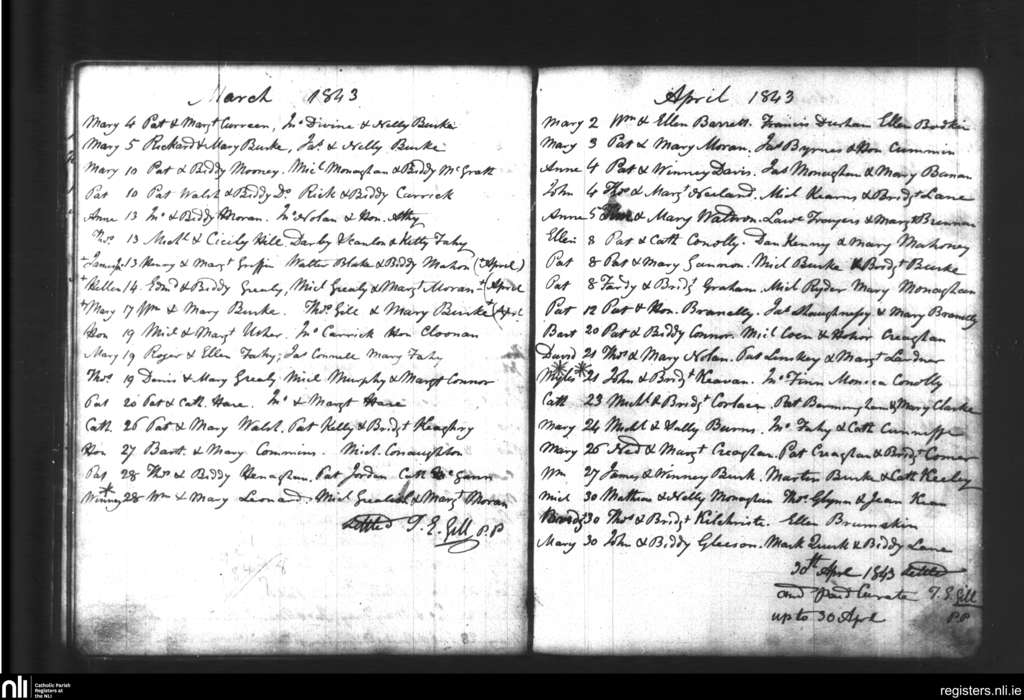 March 1843
Mary 4 Pat & Margt Curreen, Jno Divine & Nelly Burke
Mary 5 Rickard & Mary Burke, Jas & Nelly Burke
Mary 10 Pat & Biddy Mooney. Mic Monaghan & Biddy McGrath
Pat 10 Pat Walsh & Biddy Do Rick & Biddy Carrick
Anne 13 Jno & Biddy Moran. Jno Nolan & Hon. Athy
Thos 13 Michl & Cicily Hill Darby Scanlon & Kitty Fahy
13 Henry & Margt Griffin Walter Blake & Biddy Mahon (April)
+ Hellen 14 Edmd & Biddy Grealy, Micl Grealy & Margt Moran + (April
+ Mary 17 Wm & Mary Burke. Thos Gill & Mary Burke + (Aprl
Hon 19 Micl & Margt Usher. Jno Carrick Hon Cloonan
Mary 19 Roger & Ellen Fahy; Jas Connell Mary Fahy
Thos 19 Denis & Mary Grealy Micl Murphy & Margt Connor
Pat 20 Pat & Cath. Hare. Jno & Margt Hare
Cath 26 Pat & Mary Walsh. Pat Kelly & Bridgt Keaghry
Hon 27 Bart. & Mary Commins. Mich. Conaughton
Pat 28 Thos & Biddy Henaghan. Pat Jordan Cath McGann
Winney 28 Wm & Mary Leonard. Micl Grealish & Margt Moran
settled T. E. Gill P.P
April 1843
Mary 2 Wm & Ellen Barrett. Francis Durhan Ellen Bodkin
Mary 3 Pat & Mary Moran. Jas Byrnes & Hon Cummin
Anne 4 Pat & Winney Davis. Jas Monaghan & Mary Banan
John 4 Thos & Margt Neeland. Micl Kearns & Bridgt Lane
Anne 5 & Mary Waldron. Lawe Trouyers & Margt Brennan
Ellen 8 Pat & Cath Conolly. Dan Kenny & Mary Mahoney
Pat 8 Pat & Mary Gannon. Micl Burke & Bridgt Burke
Pat 8 Fardy & Bridgt Graham. Micl Ryder Mary Monaghan
Pat 12 Pat & Hon. Branelly. Jas Shaughnesy & Mary Branelly
Bart 20 Pat & Biddy Connor. Mic Coen & Honor Creaghan
David 21 Thos & Mary Nolan. Pat Linskey & Margt Lardner
Myles 21 John & Bridgt Keavan. Jno Finn Monica Conolly
Cath 23 Michl & Bridgt Corlaen Pat Bermingham & Mary Clarke
Mary 24 Michl & Sally Burns. Jno Fahy & Cath Cunniffe
Mary 26 Ned & Margt Creaghan. Pat Creaghan & Bridgt Comer
Wm 27 James & Winney Burk. Martin Burke & Cath Keeley
Micl 30 Mathias & Nelly Monaghan Thos Glynn & Jean Kean
Bridgt 30 Thos & Bridgt Kilchriste. Ellen Brumakin
Mary 30 John & Biddy Gleeson. Mark Quirk & Biddy Lane
30th Aprl 1843 settled
and paid Curate T. E. Gill
up to 30 Aprl P.P
nli Catholic Parish
Registers at
the NLI
registers.nli.ie